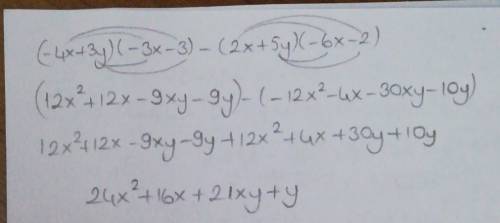 (-4x+3y)(-3x-3)-(2x+5y)(-6x-2)
(12x²+12x-9xy-9y)-(-12x²-4x-30xy-10y)
12x²+12x-9xy-9y+12x²+4x+30y+10y
24x²+16x+21xy+y